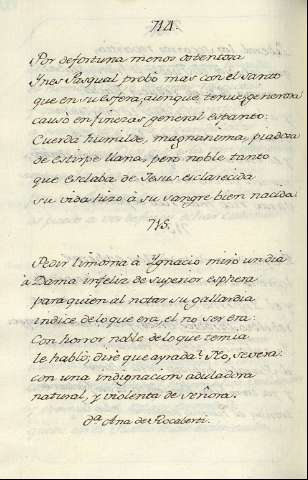 714.
Por de fortuna menos obtentosa
Ynes Pasqual probò mas con el Santo
que en su esfera, aunque tenue, generosa
causò en finezas general espanto:
Cuerda humilde, magnanima, piadosa
de estirpe llana, pero noble tanto
que esclaba de Jesus esclarecida
su vida hizo à su sangre bien nacida.
715.
Pedir limosna à Ygnacio mirò un dia
à Dama infeliz de superior esphera
para quien al notar su gallardia
indice de lo que era, el no ser era:
Con horror noble de lo que temia
le hablò, dirè que ayrada? No, severa:
con una indignacion aduladora
natural, y violenta de Señora.
dª. Ana de Rocaberti.